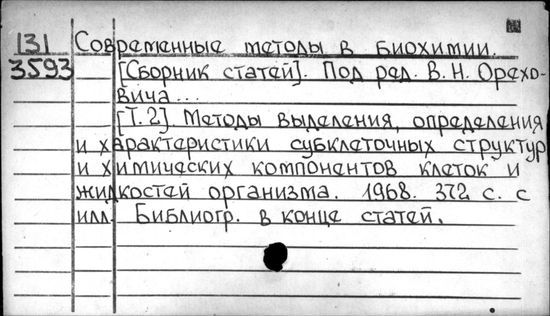 131 Современные методы в биохимии.
3593 [Сборник статей]. Под ред. В.Н. Орехо-
вича...
[Т.2]. Методы выделения, определения
и характеристики субклеточных структур
и химических компонентов клеток и
жидкостей организма. 1968. 372 с. с
илл. Библиогр. в конце статей.